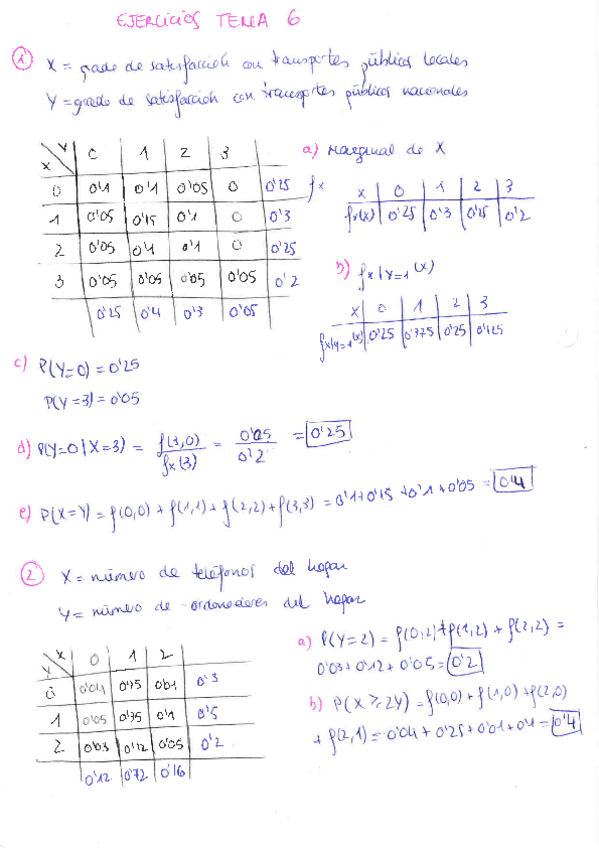 EJERCICIOS TEMA 6
1) X = grado de satisfacción con transportes públicos locales
Y = grado de satisfacción con transportes públicos nacionales
X \ Y 0 1 2 3
0 0'1 0'1 0'05 0 0'25 fx
1 0'05 0'15 0'1 0 0'3
2 0'05 0'1 0'1 0 0'25
3 0'05 0'05 0'05 0'05 0'2
0'25 0'4 0'3 0'05
a) Marginal de X
x 0 1 2 3
fx(x) 0'25 0'3 0'25 0'2
b) fx|Y=1 (x)
x 0 1 2 3
fx|Y=1(x) 0'25 0'375 0'25 0'125
c) P(Y=0) = 0'25
P(Y=3) = 0'05
d) P(Y=0|X=3) = f(3,0) / fx(3) = 0'05 / 0'2 = 0'25
e) P(X=Y) = f(0,0) + f(1,1) + f(2,2) + f(3,3) = 0'1 + 0'15 + 0'1 + 0'05 = 0'4
2) X = número de teléfonos del hogar
Y = número de ordenadores del hogar
Y \ X 0 1 2
0 0'04 0'25 0'01 0'3
1 0'05 0'35 0'1 0'5
2 0'03 0'12 0'05 0'2
0'12 0'72 0'16
a) P(Y=2) = f(0,2) + f(1,2) + f(2,2) =
0'03 + 0'12 + 0'05 = 0'2
b) P(X ≥ 2Y) = f(0,0) + f(1,0) + f(2,0)
+ f(2,1) = 0'04 + 0'25 + 0'01 + 0'1 = 0'4